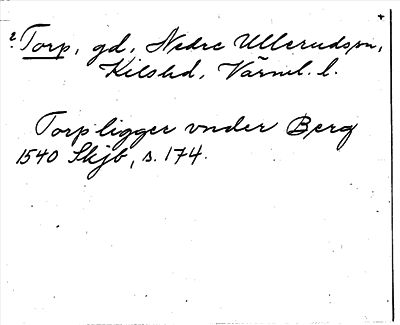 ? Torp, gd, Nedre Ullerudssn,
Kilshd, Värml. l.
Torp ligger vnder Berg
1540 Skjb, s. 174.